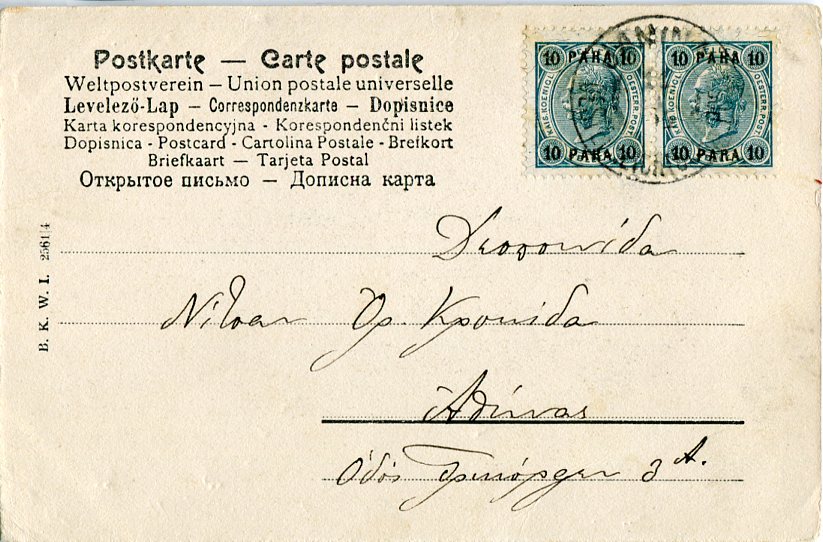 Postkarte — Carte postale
Weltpostverein – Union postale universelle
Levelező-Lap – Correspondenzkarte – Dopisnice
Karta korespondencyjna - Korespondenčni listek
Dopisnica - Postcard - Cartolina Postale - Brefkort
Briefkaart — Tarjeta Postal
Открытое письмо — Дописна карта
10 PARA 10
KAIS. KOENIGL. OESTERR. POST
10 PARA 10
10 PARA 10
KAIS. KOENIGL. OESTERR. POST
10 PARA 10
B. K. W. I. 2561|4
Δεσποινίδα
Νίτσαν Χρ. Κρονίδα
Αθήνας
Οδός 3 Α.